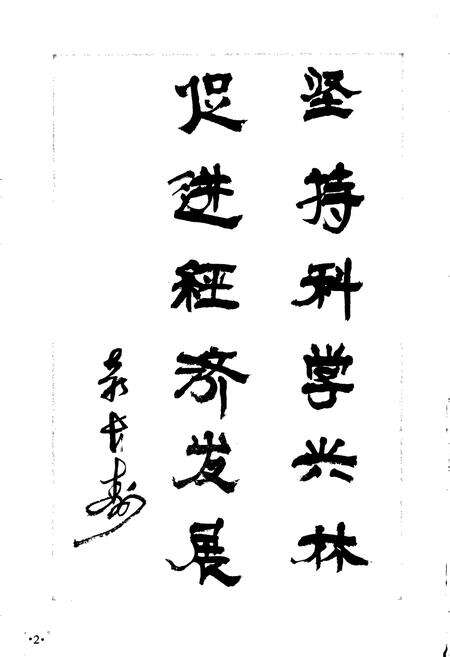 坚持科学兴林
促进经济发展
长寿
·2·